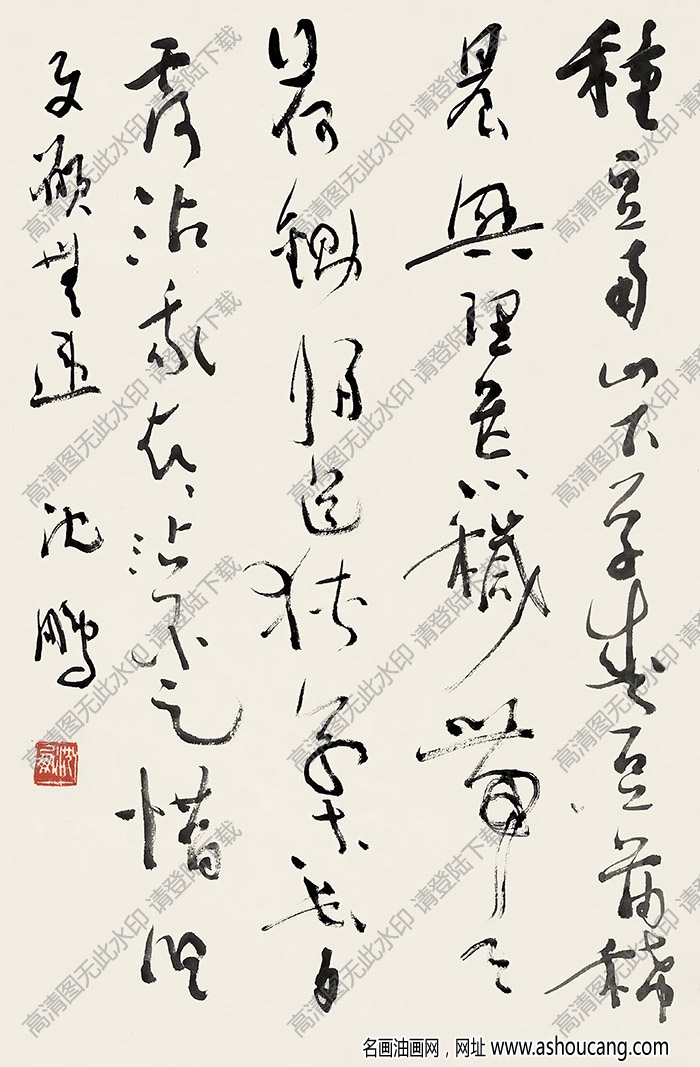 種豆南山下草盛豆苗稀
晨興理荒穢帶
月荷鋤歸道狹草木長夕
露沾我衣々沾不足惜但
使願無違 沈鵬
高清图无此水印 请登陆下载
名画油画网，网址 www.ashoucang.com